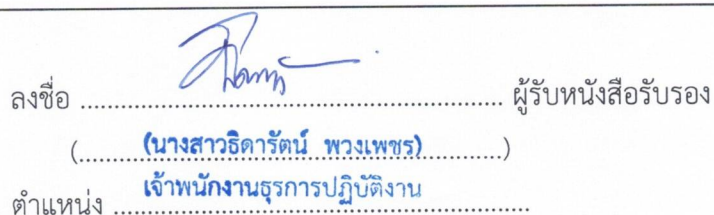 ลงชื่อ ................................................................ ผู้รับหนังสือรับรอง
(..........(นางสาวธิดารัตน์ พวงเพชร)..............)
ตำแหน่ง เจ้าพนักงานธุรการปฏิบัติงาน